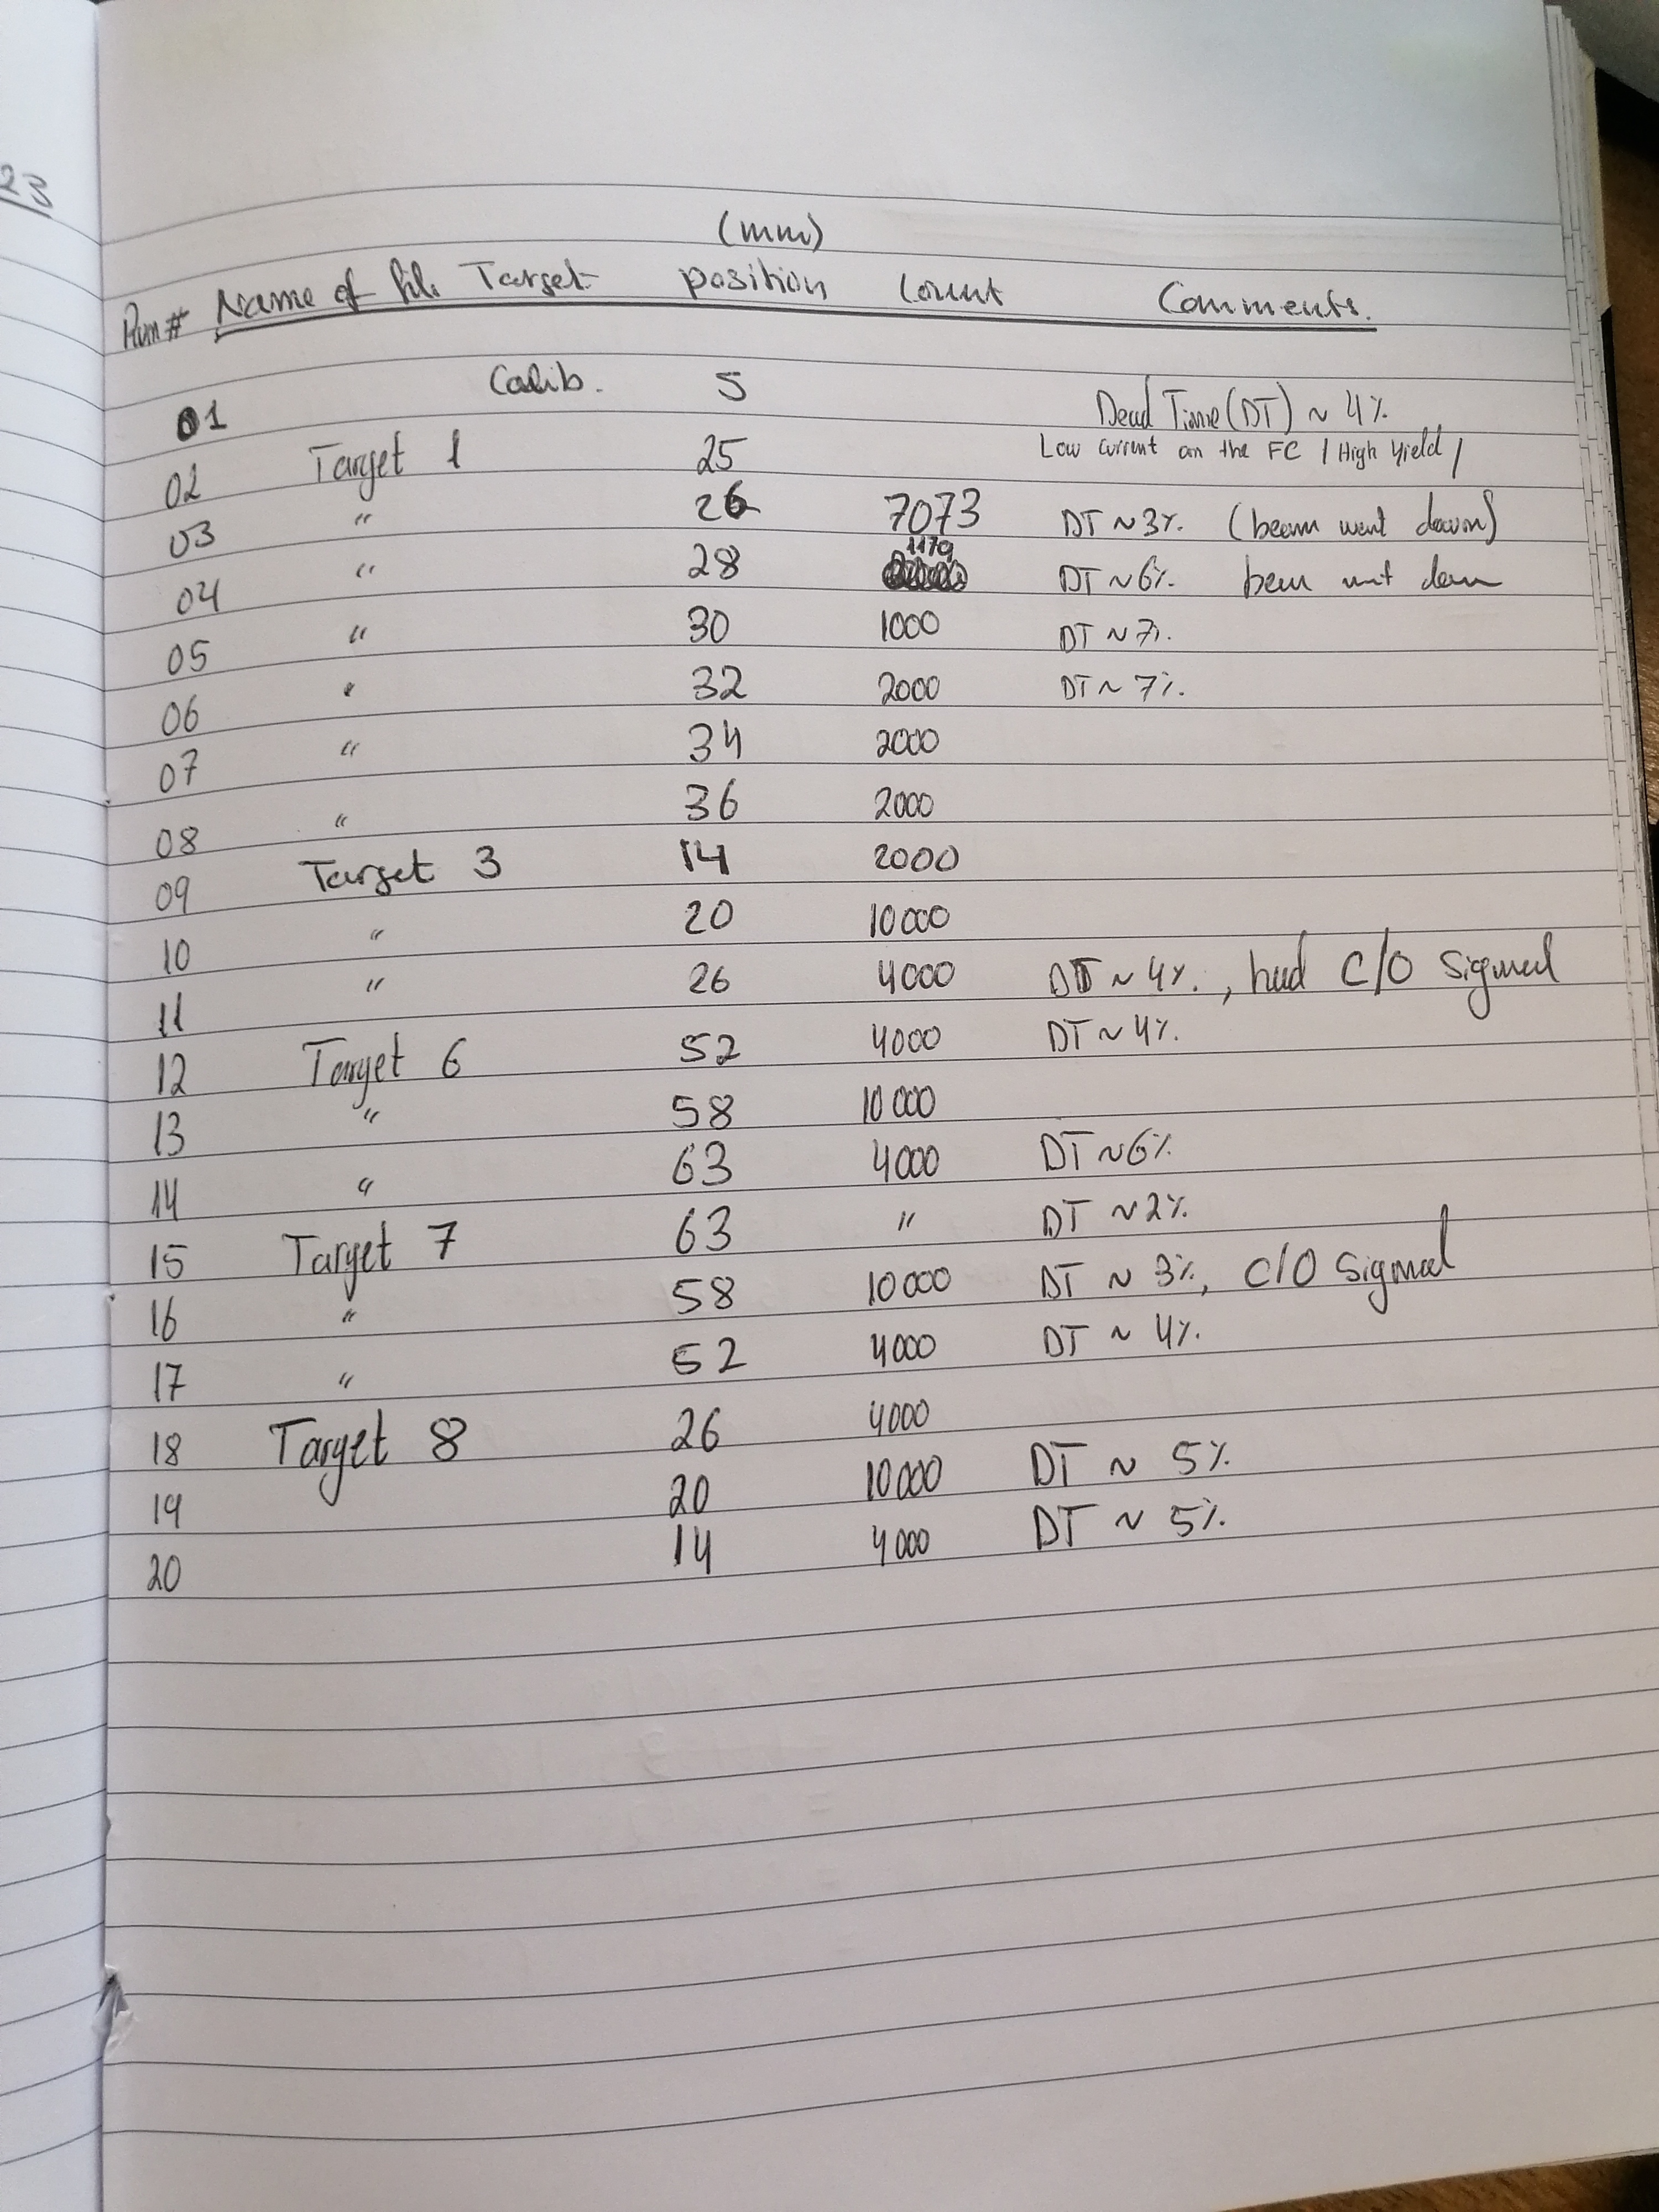 23
(mm)
Run # Name of file Target position Count Comments.
01 Calib. 5 Dead Time (DT) ~ 4%
02 Target 1 25 Low current on the FC / High Yield /
03 " 26 7073 DT ~ 3%. (beam went down)
04 " 28 1179 DT ~ 6%. beam went down
05 " 30 1000 DT ~ 7%.
06 " 32 2000 DT ~ 7%.
07 " 34 2000
08 " 36 2000
09 Target 3 14 2000
10 " 20 10000
11 " 26 4000 DT ~ 4%. , had C/O signal
12 Target 6 52 4000 DT ~ 4%.
13 " 58 10000
14 " 63 4000 DT ~ 6%.
15 Target 7 63 " DT ~ 2%.
16 " 58 10000 DT ~ 3%, C/O signal
17 " 52 4000 DT ~ 4%.
18 Target 8 26 4000
19 20 10000 DT ~ 5%.
20 14 4000 DT ~ 5%.